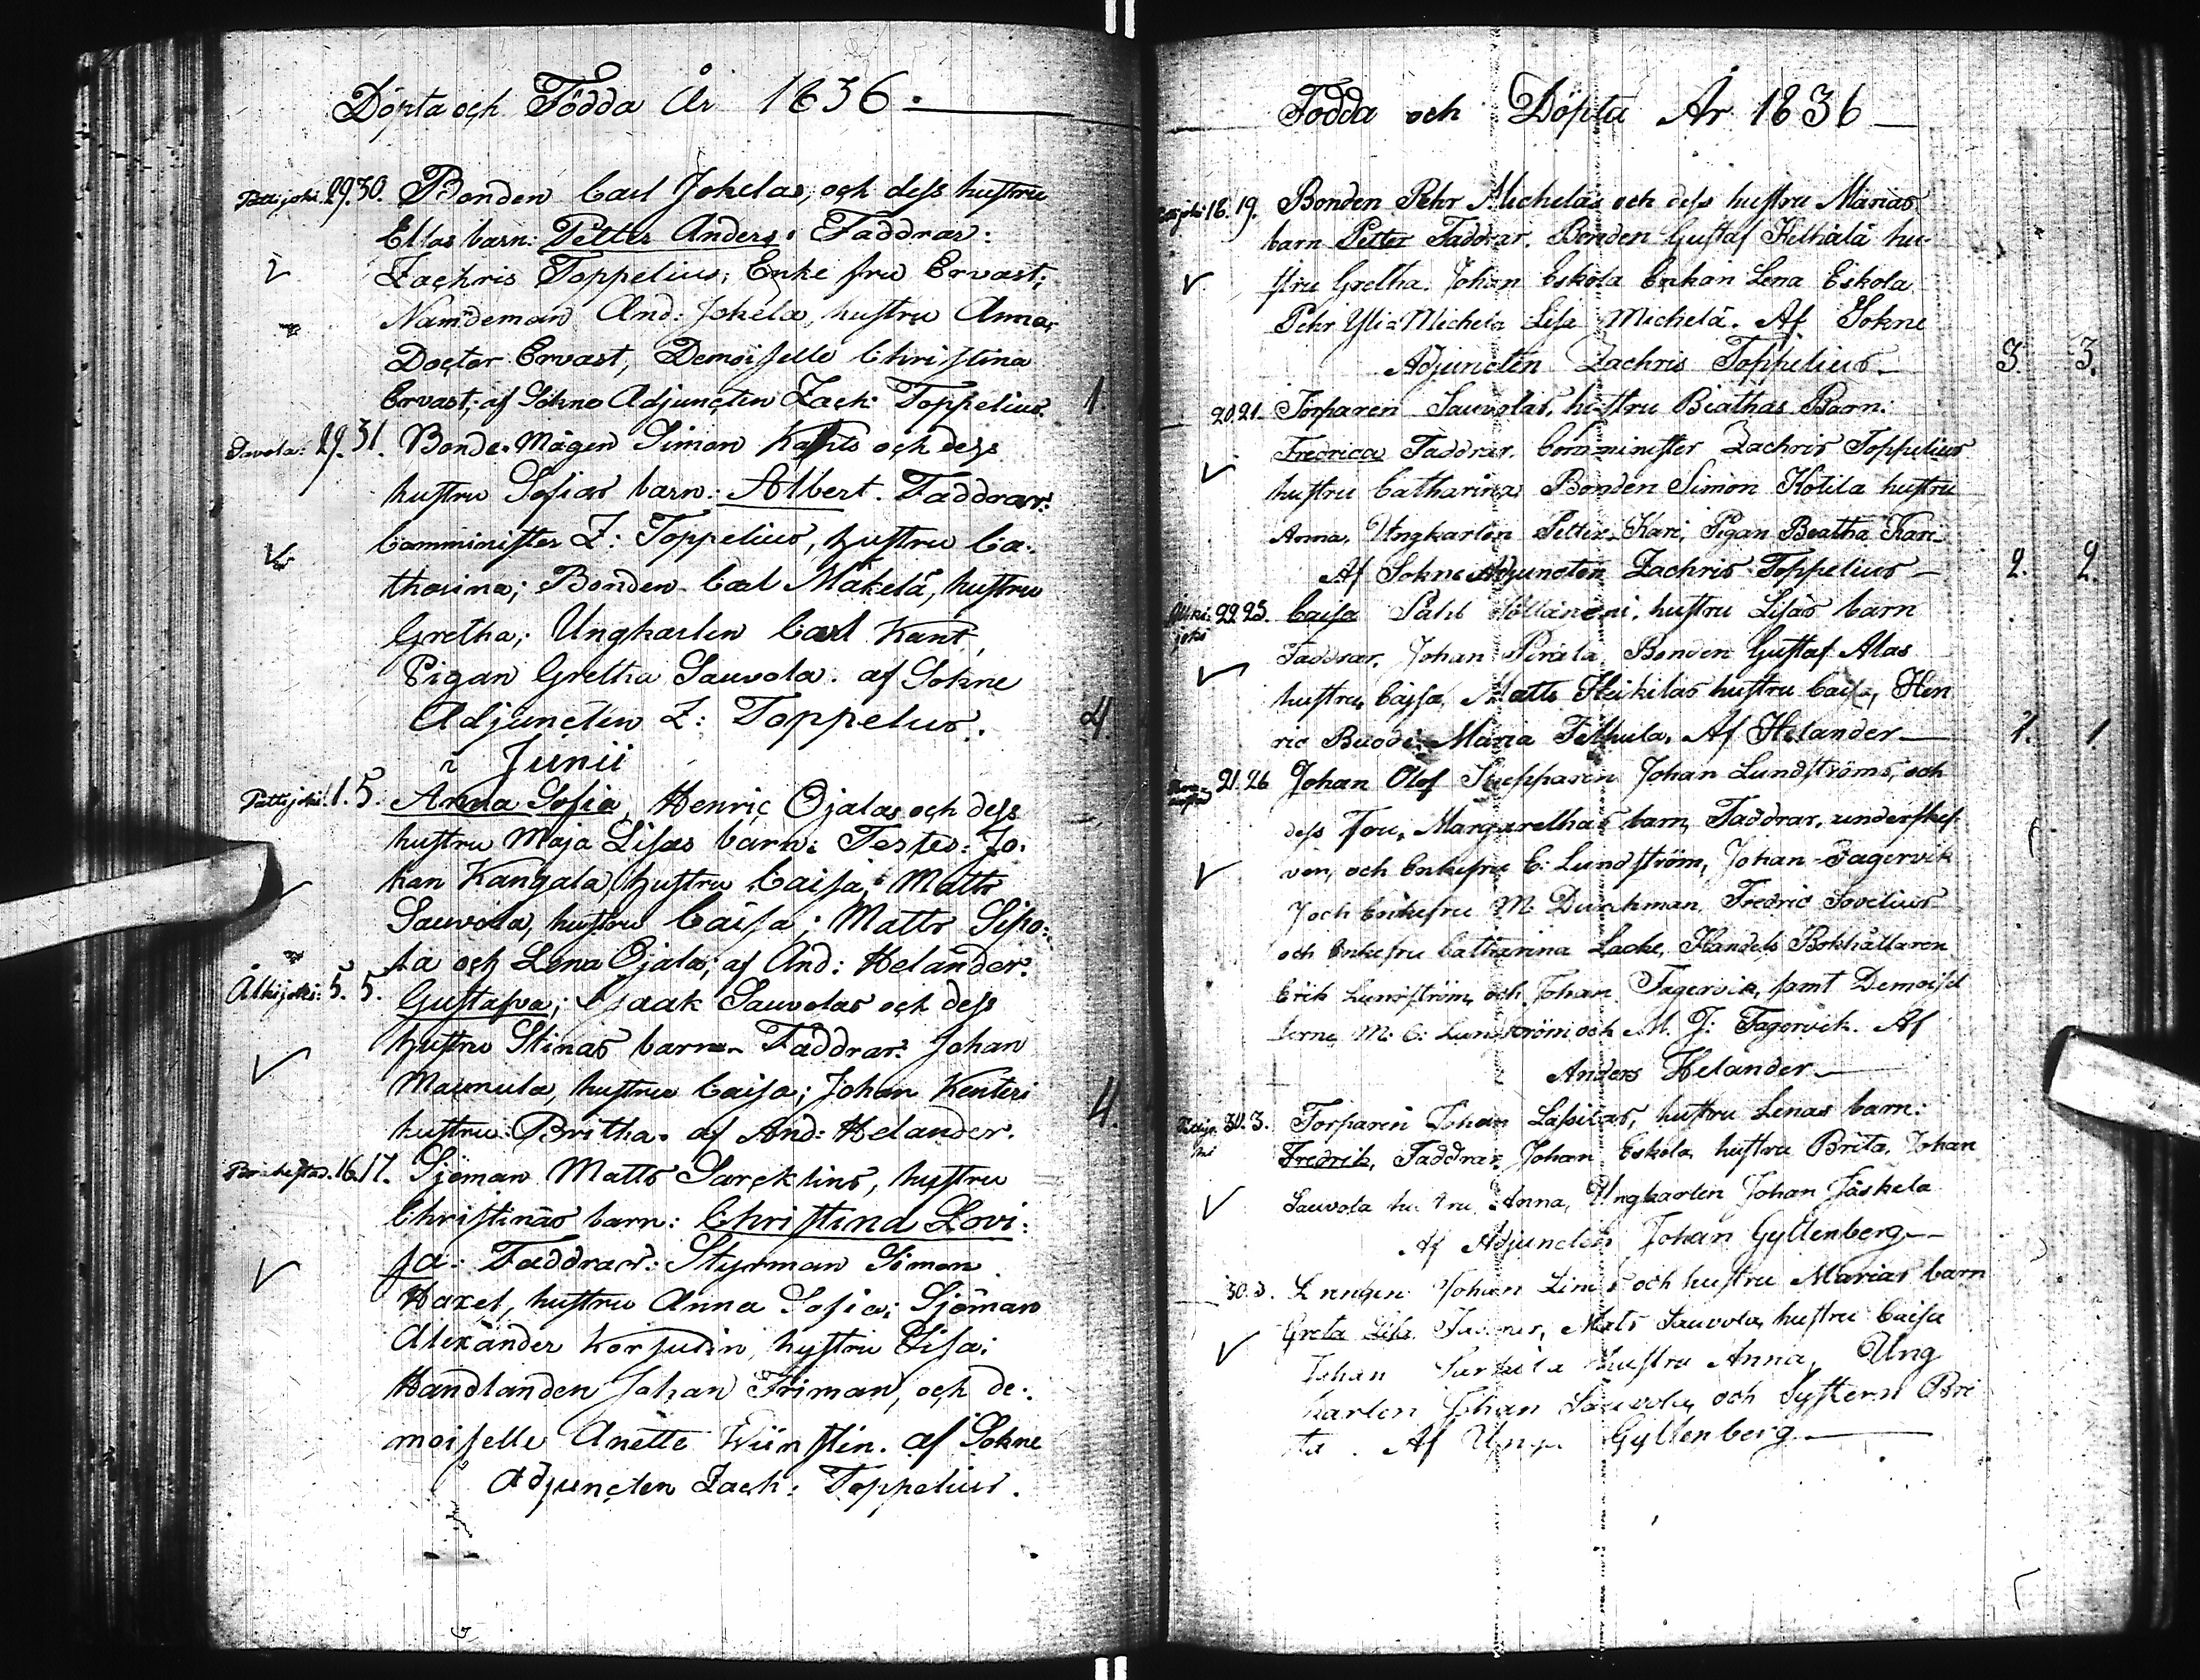 Döpta och Födda År 1836.
Pattijoki. 29. 30. Bonden Carl Jokelas, och dess hustru
Ellas barn: Petter Anders. Faddrar:
Zachris Toppelius, Enke fru Ervast;
Nämdeman And: Jokela, hustru Anna,
Doctor Ervast, Demoiselle Christina
Ervast; af Sokne Adjuncten Zach: Toppelius. 1.
Savola: 29. 31. Bonde-Mågen Simon och dess
hustru Sofias barn: Albert. Faddrar:
Comminister Z: Toppelius, hustru Ca-
tharina; Bonden Carl Mäkelä, hustru
Gretha; Ungkarlen Carl Kant,
Pigan Gretha Sauvola. af Sokne
Adjuncten Z: Toppelius. 4.
i Junii
Pattijoki. 1. 5. Anna Sofia, Henric Ojalas och dess
hustru Maja Lisas barn: Testes: Jo-
han Kangala, hustru Caisa, Matts
Sauvola, hustru Caisa; Matts Sipo-
la och Lena Ojala; af And: Helander.
Ålkijoki: 5. 5. Gustafva; Isaak Sauvolas och dess
hustru Stinas barn. Faddrar: Johan
Maunula, hustru Caisa; Johan Kenteri
hustru: Britha. af And: Helander. 4.
Brahestad. 16. 17. Sjöman Matts Sarcklins, hustru
Christinas barn: Christina Lovi-
sa: Faddrar: Styrman Simon
Haxel, hustru Anna Sofia; Sjöman
Alexander Korsudin, hustru Lisa;
Handlanden Johan Friman, och de-
moiselle Anette Wiinstin. af Sokne
Adjuncten Zach: Toppelius.
Födda och Döpta År 1836
18. 19. Bonden Pehr Michelas och dess hustru Marias
barn Petter Faddrar. Bonden Gustaf Helhälä hu-
stru Gretha. Johan Eskola Enkan Lena Eskola
Pehr Yli-Michela Lisa Michelä. Af Sokne
Adjuncten Zachris Toppelius 3. 3.
20. 21. Torparen Sauvolas, hustru Biathas Barn:
Fredrica Faddrar. Comminister Zachris Toppelius
hustru Catharina Bonden Simon Kotila hustru
Anna. Ungkarlen Petter Kari, Pigan Beatha Kari
Af Sokne Adjuncten Zachris Toppelius 2. 2.
Ålki-joki 22. 25. Caisa Påhl hustru Lisas barn
Faddrar. Johan Pirala Bonden Gustaf Alas
hustru Cajsa, Matts Heikilas hustru Caisa, Hen
ric Buodi Maria Af Helander 1. 1
21. 26 Johan Olof Skepparen Johan Lundströms, och
dess Fru, Margarethas barn, Faddrar, underskef
ver, och Enkefru E: Lundström, Johan Fagervik
J och Enkefru M. Dunckman Fredric Sovelius
och Enkefru Catharina Lacke, Handels Bokhållaren
Erik Lundström och Johan Fagervik, samt Demoisel
lerne M: C: Lundström och M. J: Fagervik. Af
Anders Helander
30. 3. Torparen Johan Lassilas, hustru Lenas barn:
Fredrik, Faddrar Johan Eskola hustru Brita. Johan
Sauvola hustru Anna, Ungkarlen Johan Jäskela
Af Adjuncten Johan Gyllenberg
30. 3. Johan och hustru Marias barn
Greta Lisa Faddrar, Mats Sauvola, hustru Caisa
Johan hustru Anna, Ung
karlen Johan Sauvola, och Systern Bri
ta. Af Gyllenberg